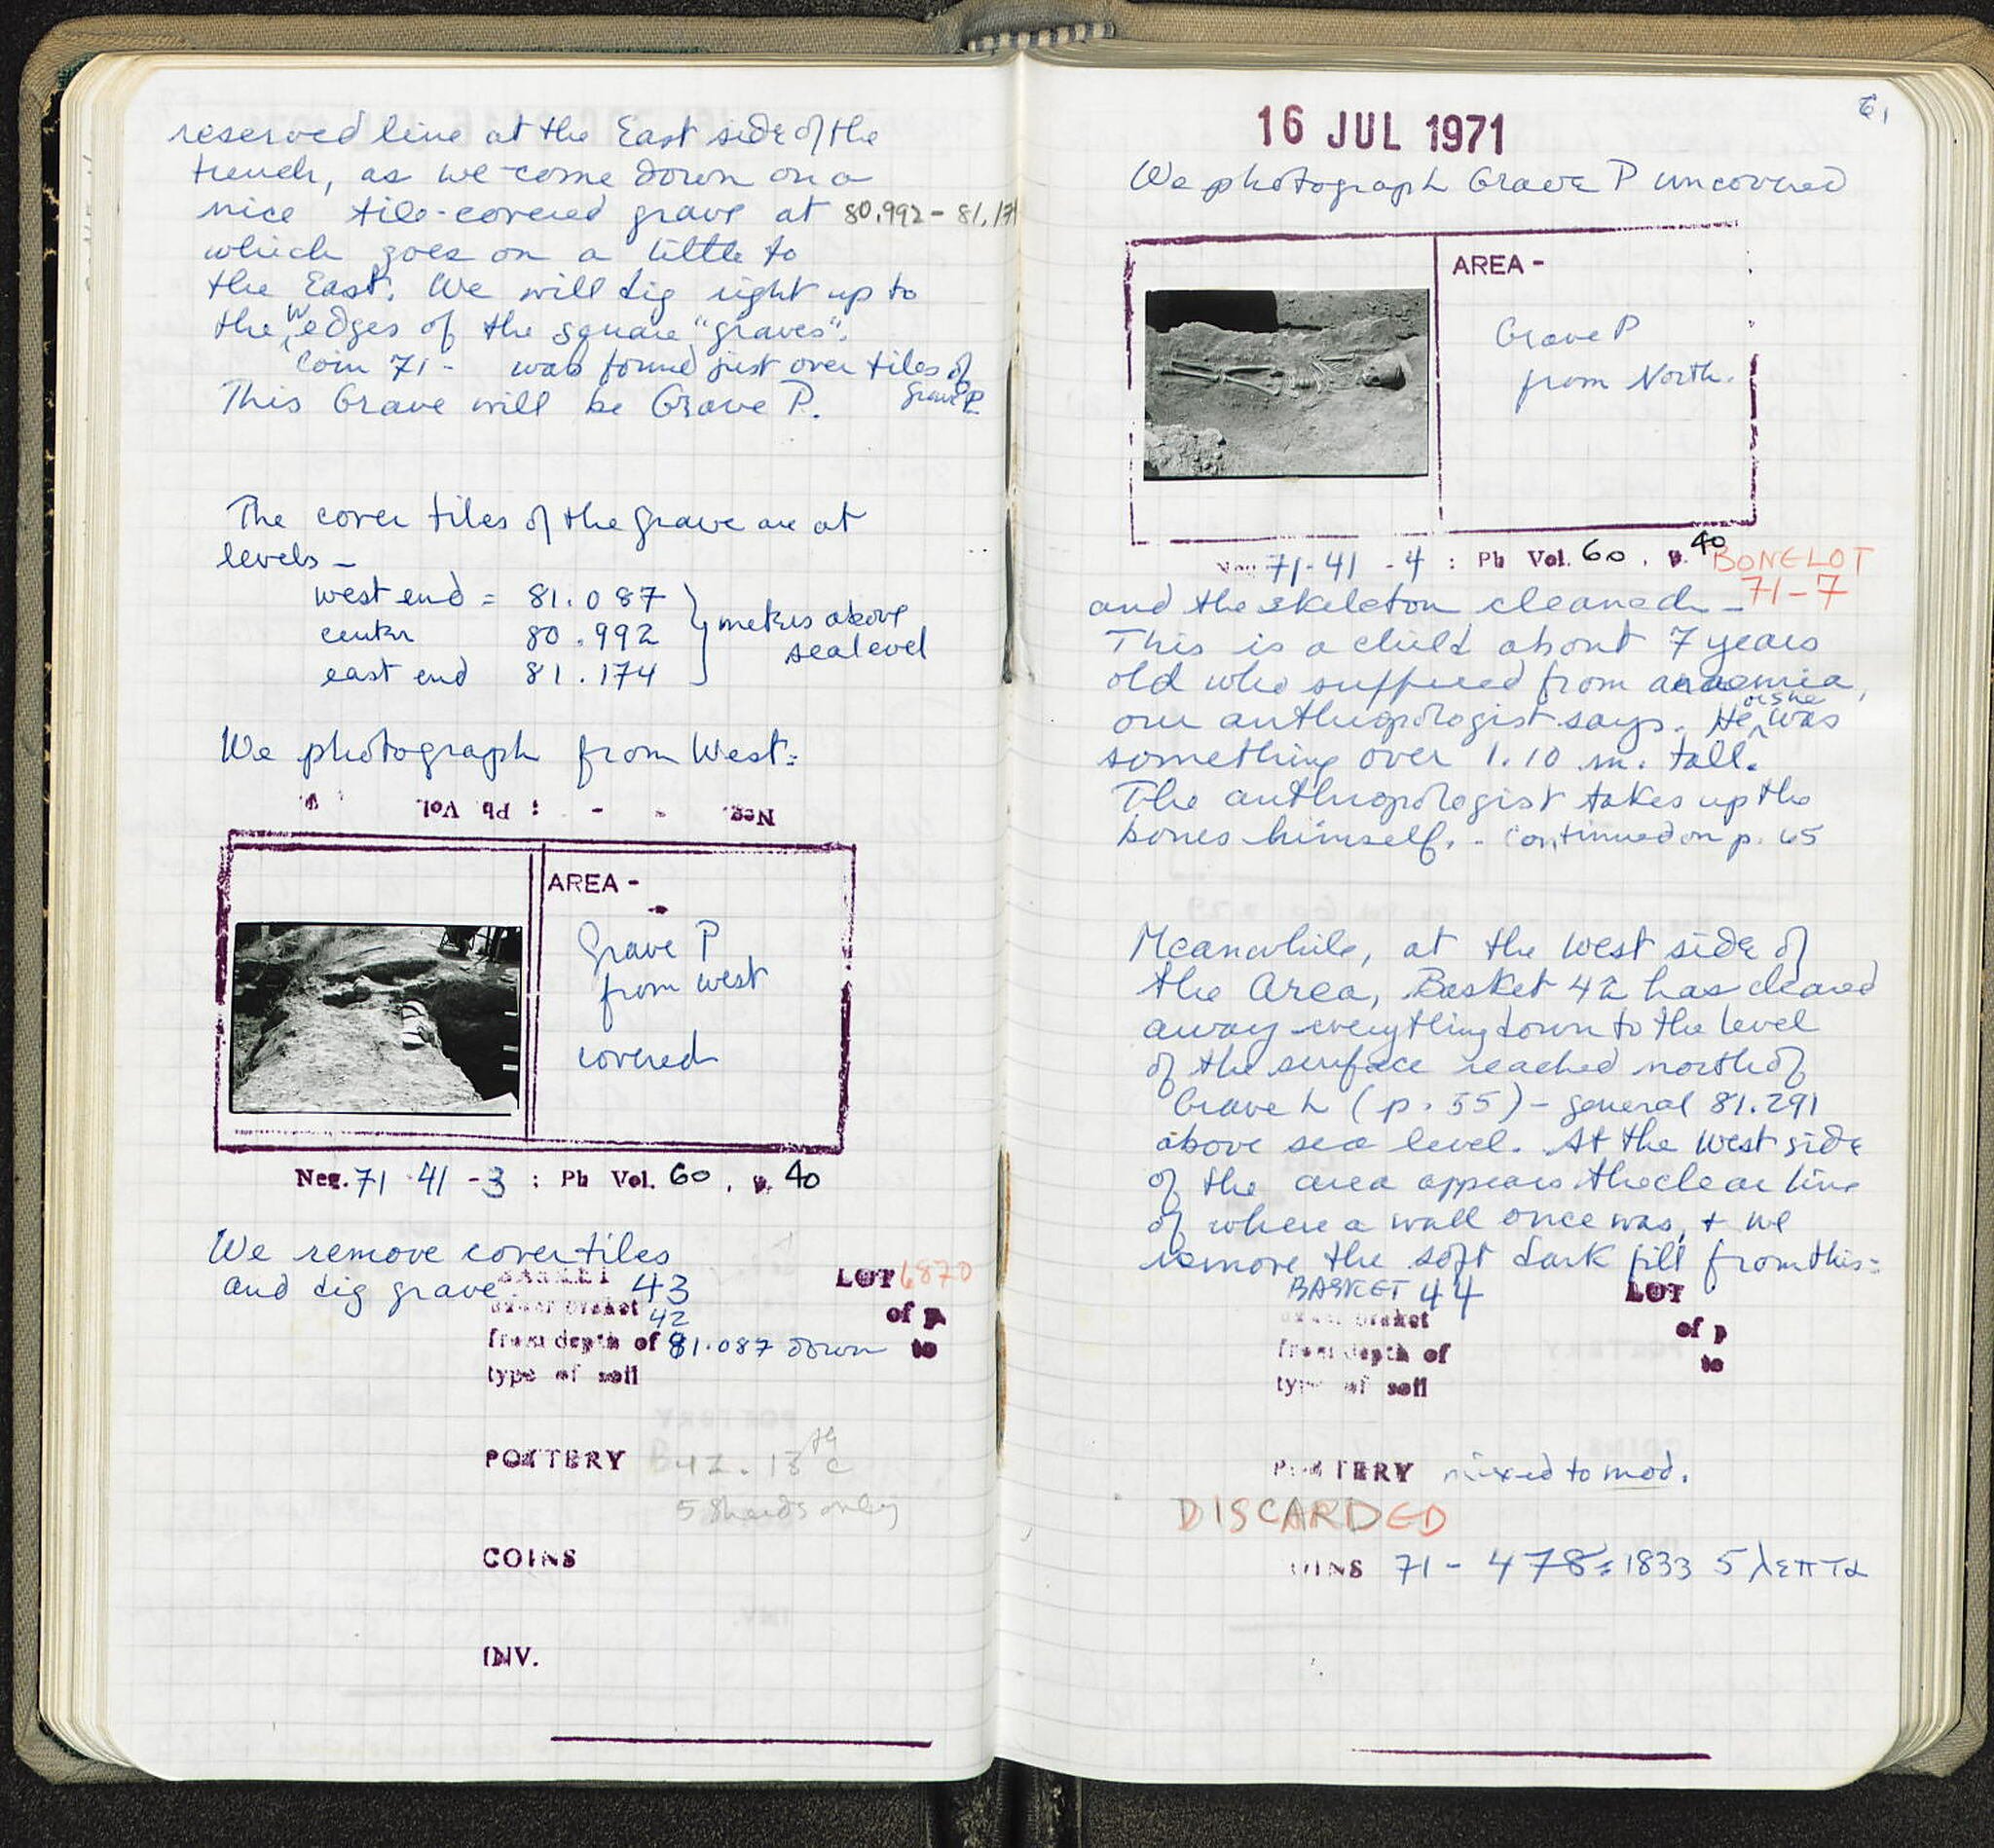 reserved line at the East side of the
trench, as we come down on a
nice tile-covered grave at 80.992 - 81.17
which goes on a little to
the East. We will dig right up to
the W edges of the square "graves".
Coin 71 - was found just over tiles of
Grave P
This Grave will be Grave P.
The cover tiles of the grave are at
levels -
west end = 81.087
center 80.992
east end 81.174
metres above
sea level
We photograph from West:
Neg. - - : Pb Vol. p.
AREA -
Grave P
from west
covered
Neg. 71 41 - 3 : Pb Vol. 60 , p. 40
We remove cover tiles
and dig grave.
BASKET 43 LOT 6870
under basket 42 of p
from depth of 81.087 down to
type of soil
POTTERY B 42. 13th c
5 sherds only
COINS
INV.
61
16 JUL 1971
We photograph Grave P uncovered
AREA -
Grave P
from North.
Neg. 71-41 - 4 : Pb Vol. 60 , p. 40
BONE LOT
71-7
and the skeleton cleaned -
This is a child about 7 years
old who suffered from anaemia,
our anthropologist says. He or she was
something over 1.10 m. tall.
The anthropologist takes up the
bones himself. - Continued on p. 65
Meanwhile, at the west side of
the Area, Basket 42 has cleared
away everything down to the level
of the surface reached north of
Grave L (p. 55) - general 81.291
above sea level. At the west side
of the area appears the clear line
of where a wall once was, + we
remove the soft dark fill from this:
BASKET 44 LOT
under basket of p
from depth of to
type of soil
POTTERY mixed to mod.
DISCARDED
COINS 71 - 478 = 1833 5 λεπτα